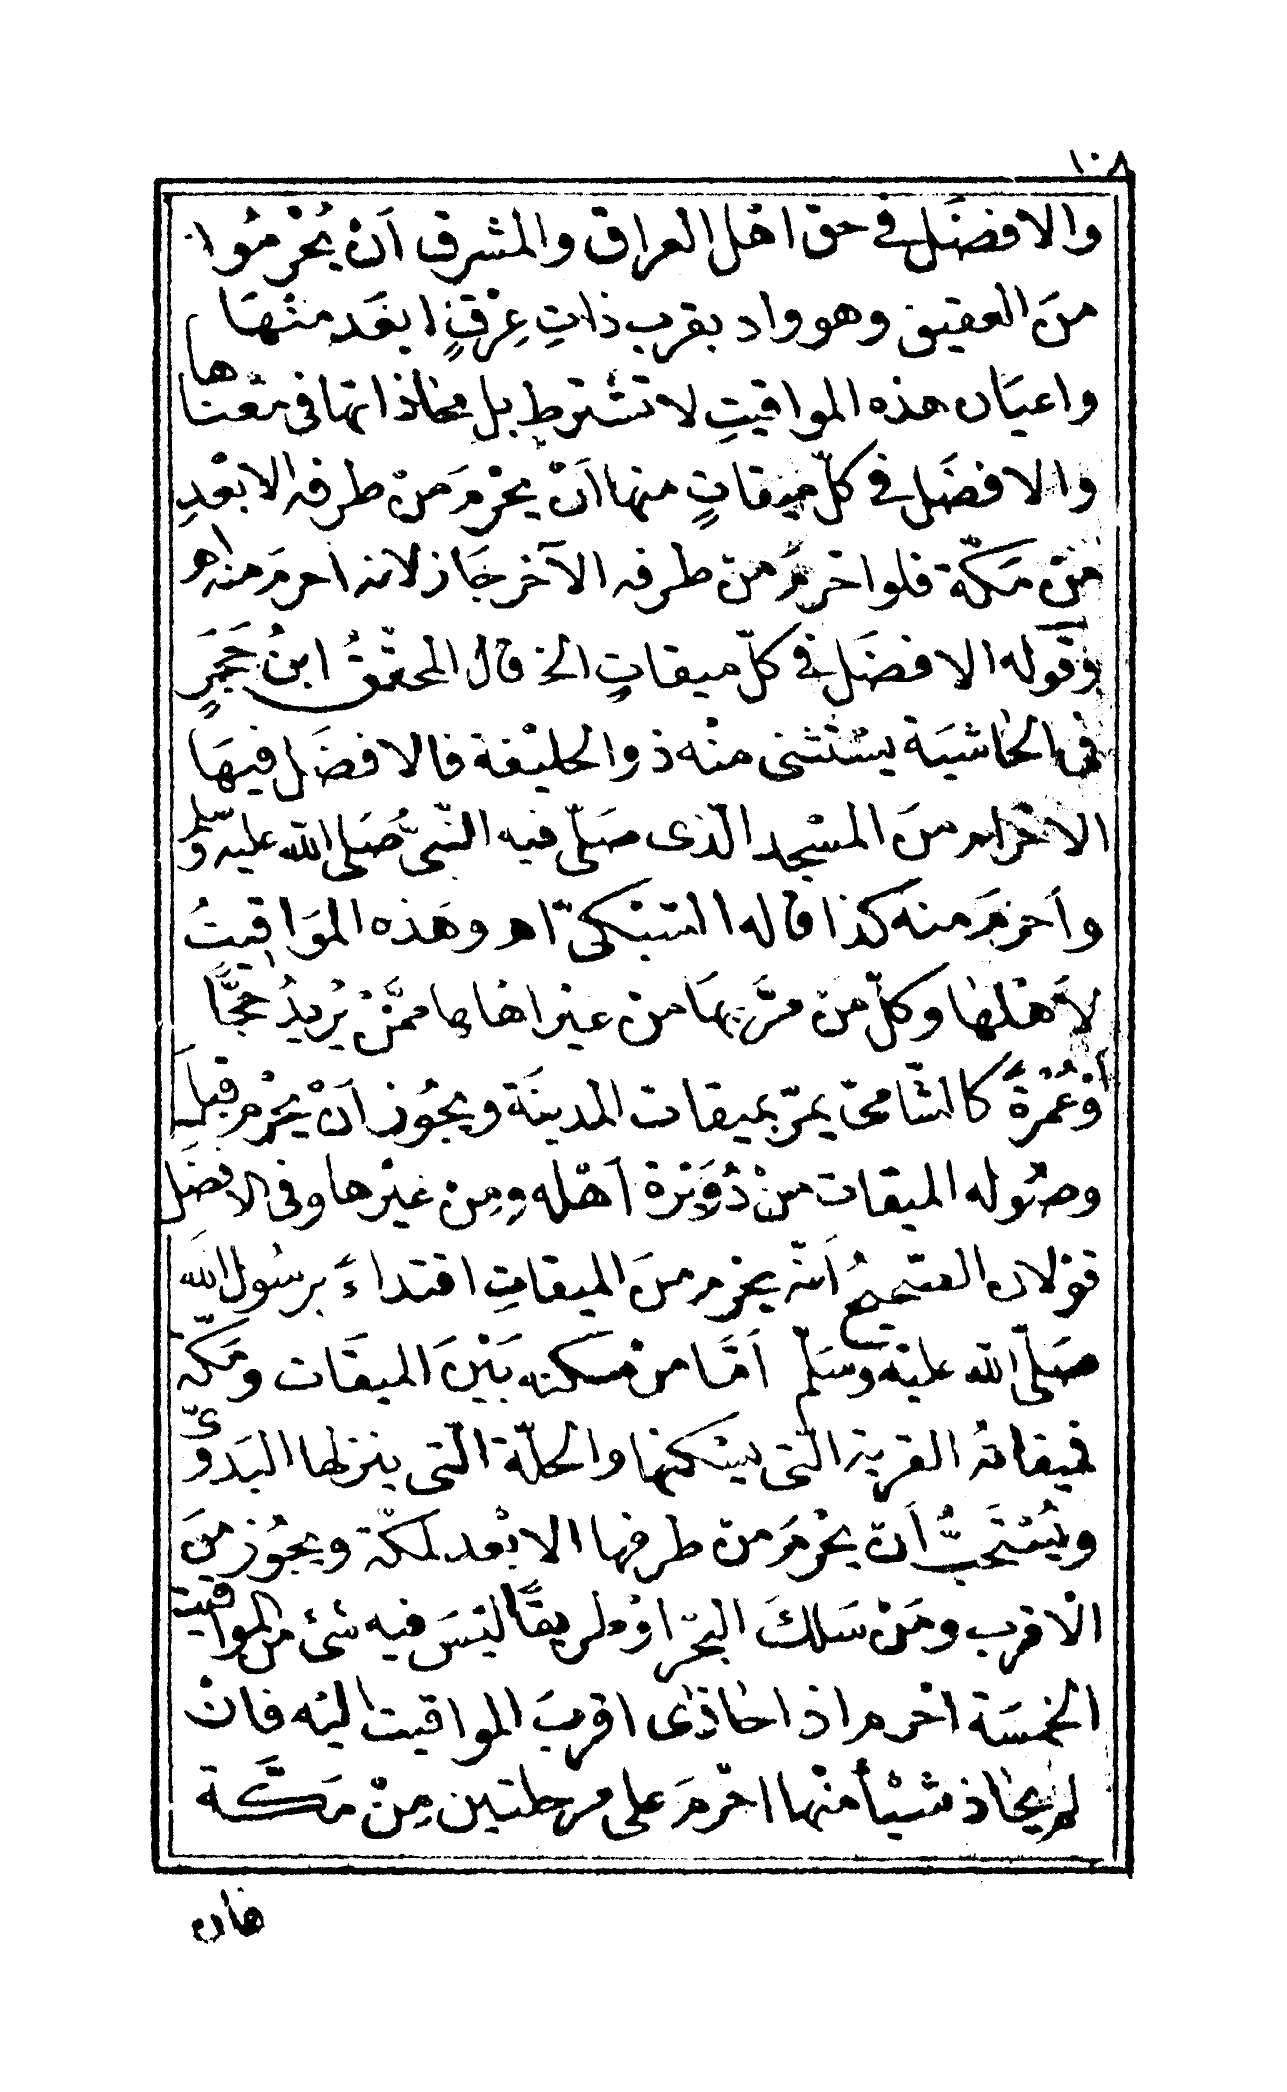 ١٠٨
والافضَل في حقّ اهْل العراق والمشرق اَنْ يُحْرمُوا
منَ العقيق وهو واد بقرب ذاتِ عِرْقٍ ابعَد منْهَا
واعيَان هذه المواقيتِ لا تشترط بل محاذاتها في معْناها
والافضَل في كلّ ميقاتٍ منها اَنْ يحْرمَ منْ طرفه الابعْدِ
منْ مَكّة فلو احْرمَ منْ طرفه الآخر جَاز لانه احرمَ منه اهـ
وقوله الافضَل في كلّ ميقاتٍ الخ قال المحقّقُ ابنُ حَجَرٍ
في الحاشيَة يسْتثنى منْه ذو الحليْفة فالافضَل فيهَا
الاحْرام منَ المسْجد الّذى صَلّى فيه النّبىُّ صَلى الله عليه وسّلم
واَحْرمَ منه كذا قاله السّبْكىّ اهـ وهَذه الموَاقيتُ
لاَهْلهَا وكلّ منْ مرَّ بهَا منْ غيْر اهلها ممَّنْ يُريدُ حَجًّا
أوْ عُمْرةً كالشّامىّ يمرّ بميقات المدينَة ويجُوز اَنْ يحْرم قبلَ
وصُوله الميقات منْ دُوَيْرة اَهْله ومِنْ غيْرها وفى الافضَل
قوْلان الصّحيحُ اَنّه يحْرم منَ الميقاتِ اقتداءً برسُول الله
صَلّى الله عليْه وسَلّم اَمّا منْ مسكنه بَيْنَ الميقَات ومَكّة
فميقاته القرية الّتى يسْكنها والحلّة الّتى ينزلها البَدوىّ
ويُسْتَحَبُّ اَنْ يحْرمَ منْ طرفها الابْعد لمكّة ويجُوز منَ
الْاقرب ومَنْ سَلكَ البَحْر اوْ طريقًا ليْسَ فيه شئ من المواقيت
الخمسَة احْرم اذا حَاذَى اقربَ المواقيت اليْه فانْ
لم يحَاذ شيْأً منْها احْرمَ على مرحلتين مِنْ مَكّة
فان